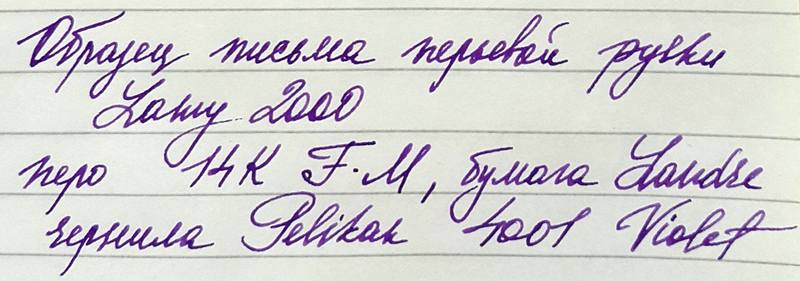 Образец письма перьевой ручки
Lamy 2000
перо 14K F-M, бумага Landre
чернила Pelikan 4001 Violet